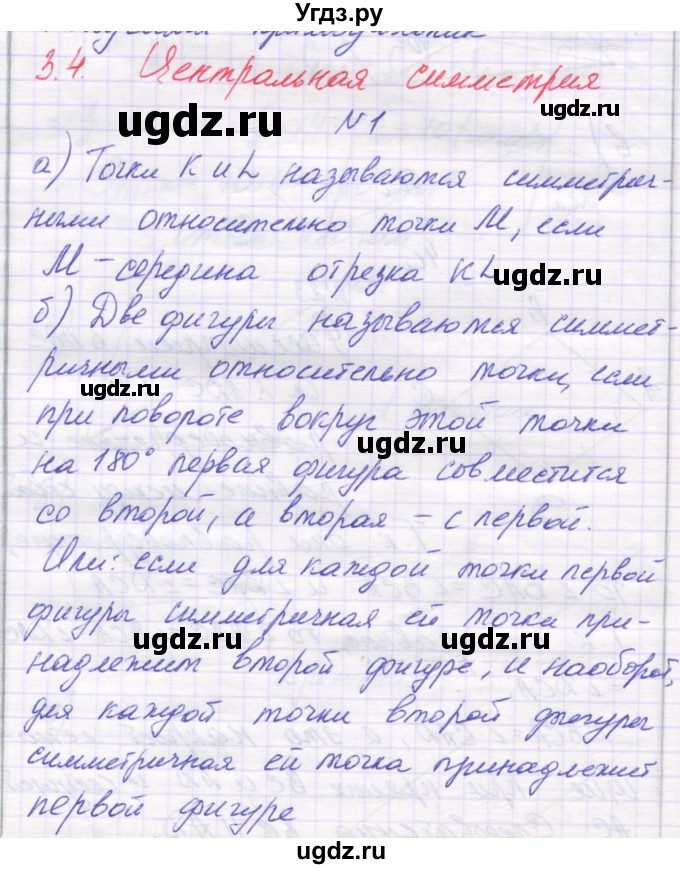 Угдз.ру
прямоугольник
3.4. Центральная симметрия
ugdz.ru
ugdz.ru
№1
а) Точки K и L называются симметрич-
ными относительно точки M, если
M - середина отрезка KL
ugdz.ru
б) Две фигуры называются симмет-
ричными относительно точки, если
ugdz.ru
при повороте вокруг этой точки
на 180° первая фигура совместится
со второй, а вторая - с первой.
ugdz.ru
Или: если для каждой точки первой
фигуры симметричная ей точка при-
ugdz.ru
ugdz.ru
надлежит второй фигуре, и наоборот,
для каждой точки второй фигуры
симметричная ей точка принадлежит
первой фигуре
ugdz.ru
ugdz.ru